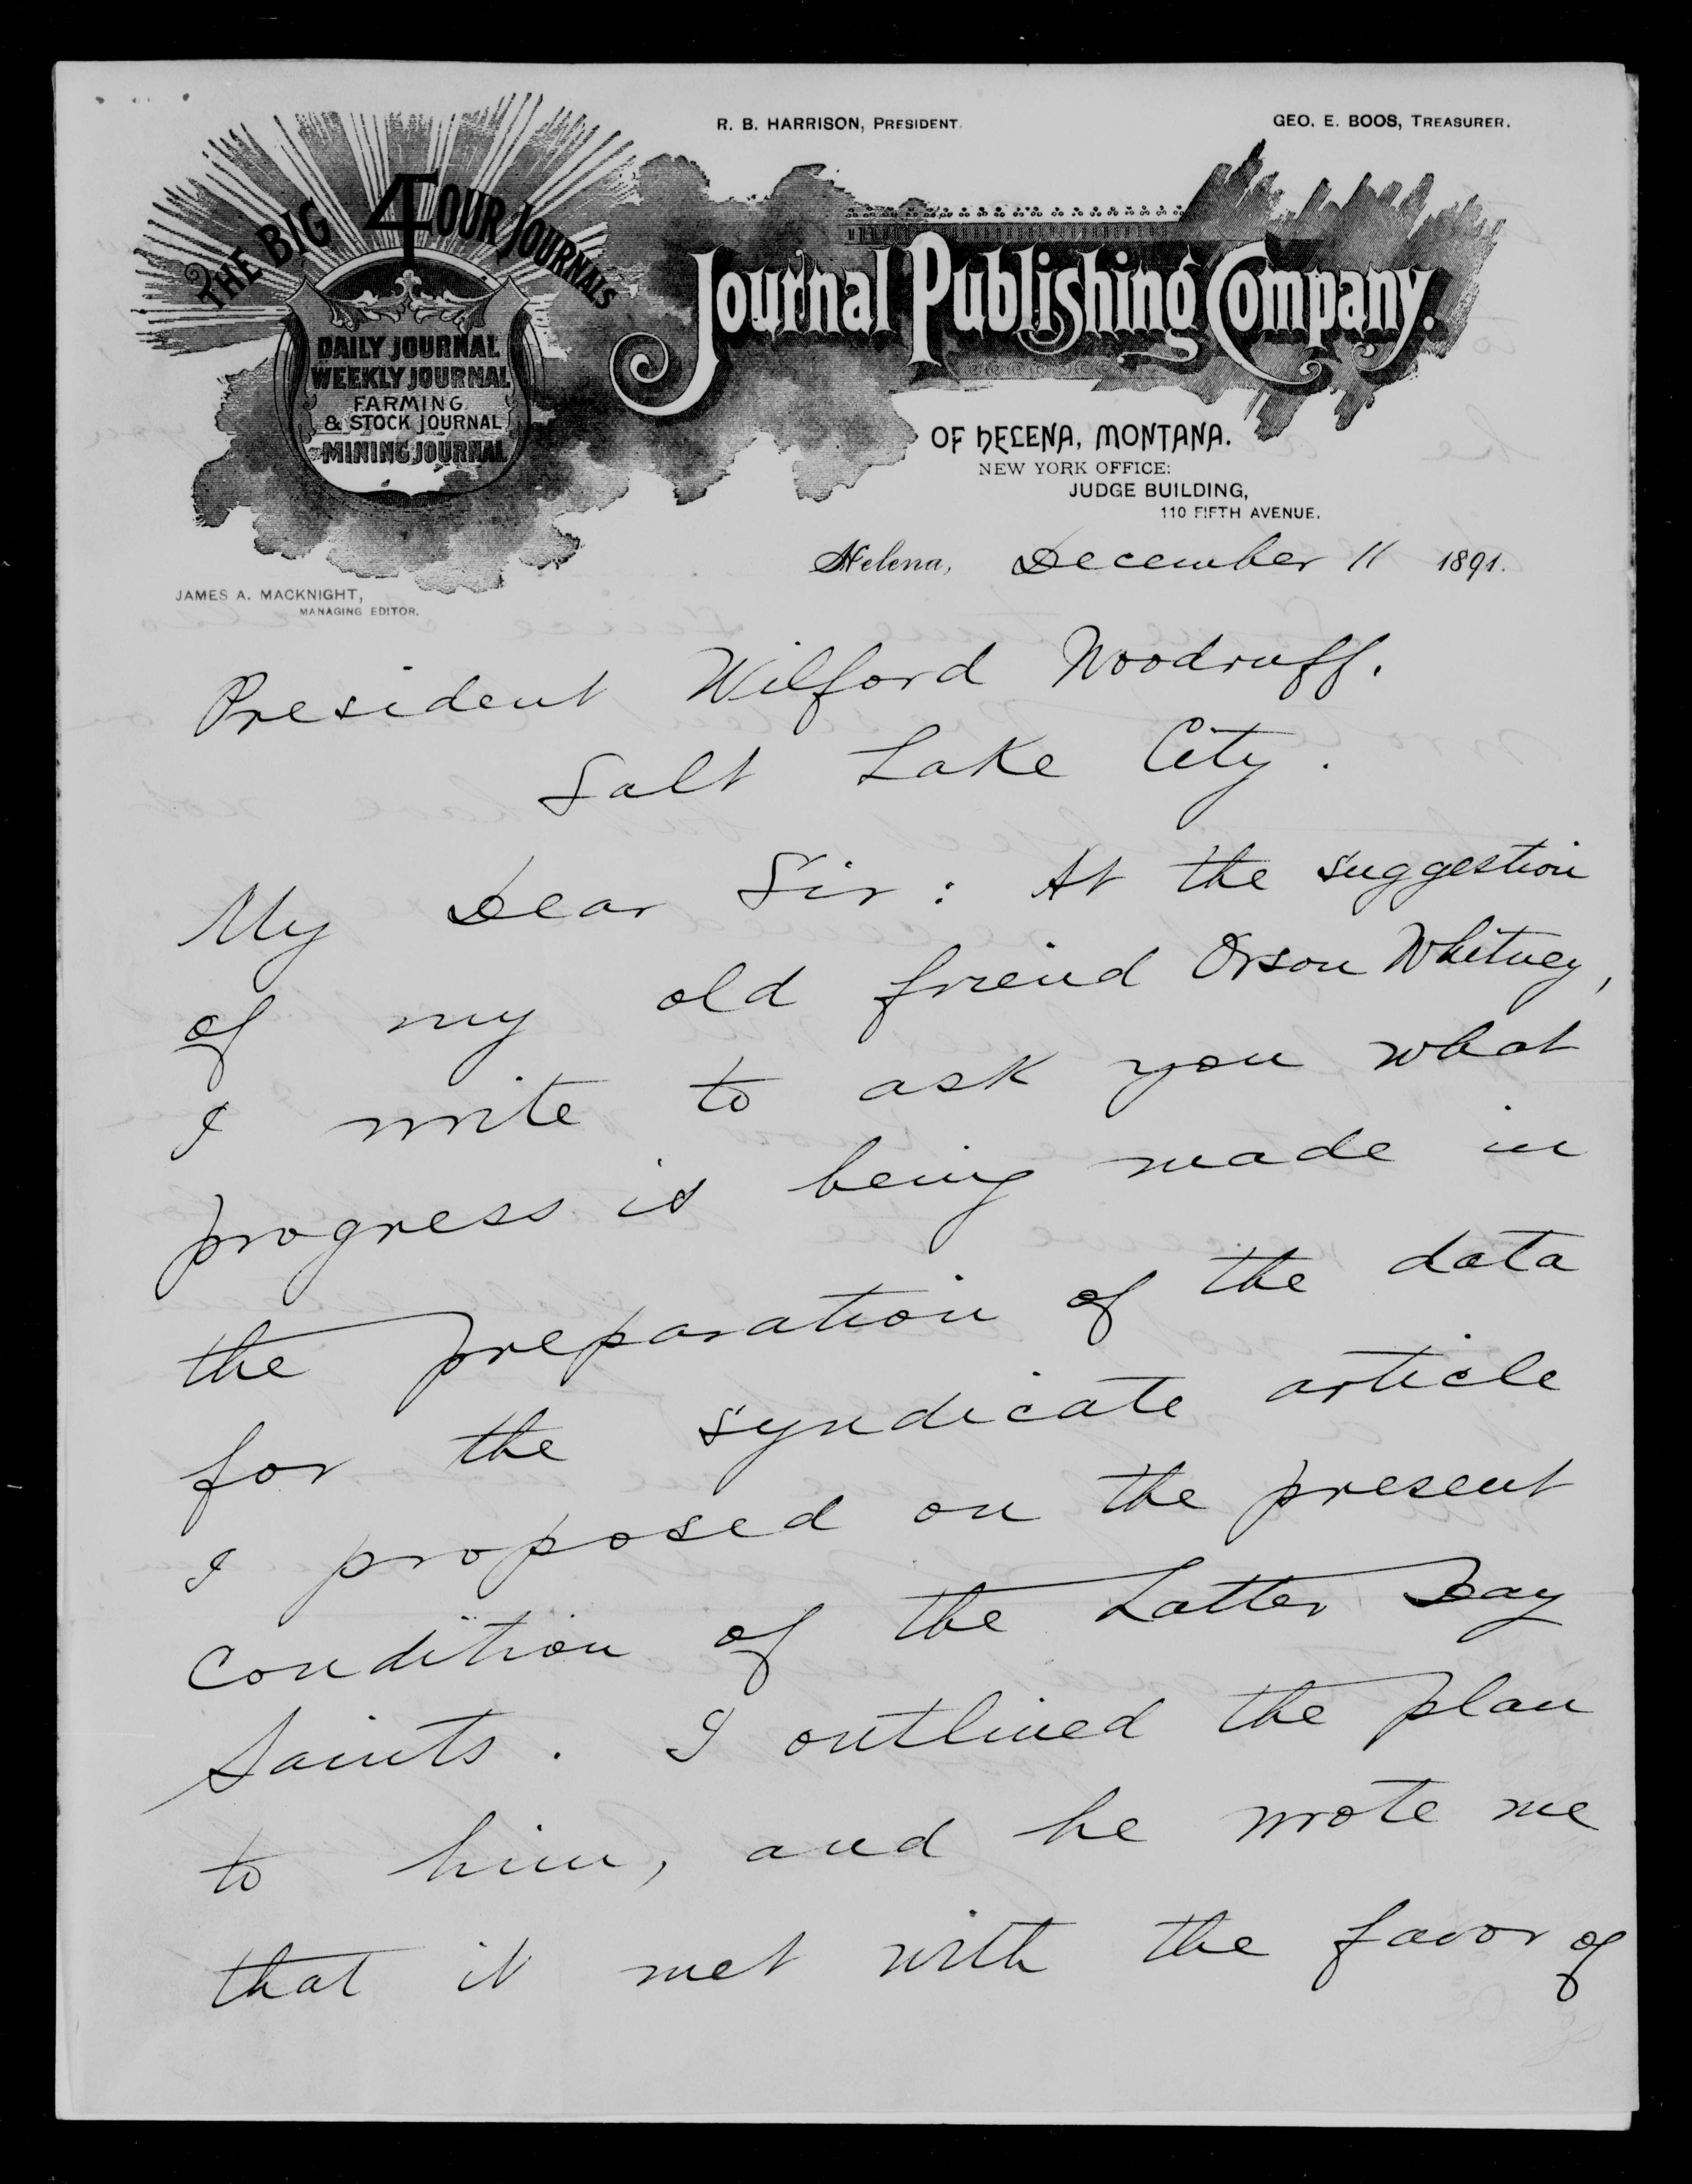 R. B. HARRISON, PRESIDENT.
GEO. E. BOOS, TREASURER.
THE BIG 4 FOUR JOURNALS
DAILY JOURNAL
WEEKLY JOURNAL
FARMING
& STOCK JOURNAL
MINING JOURNAL
Journal Publishing Company.
OF HELENA, MONTANA.
NEW YORK OFFICE:
JUDGE BUILDING,
110 FIFTH AVENUE.
Helena, December 11 1891.
JAMES A. MACKNIGHT,
MANAGING EDITOR.
President Wilford Woodruff.
Salt Lake City.
My Dear Sir: At the suggestion
of my old friend Orson Whitney,
I write to ask you what
progress is being made in
the preparation of the data
for the syndicate article
I proposed on the present
condition of the Latter Day
Saints. I outlined the plan
to him, and he wrote me
that it met with the favor of